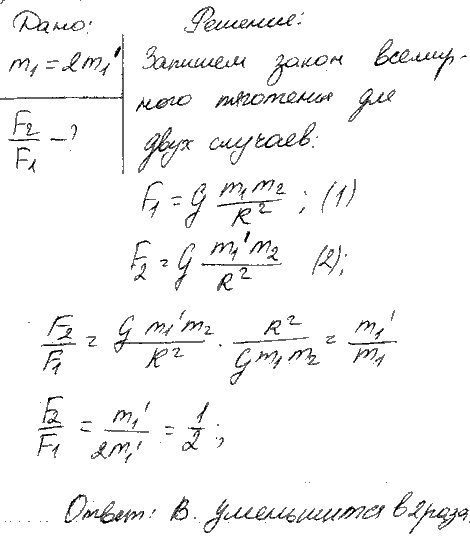 Дано:
m₁ = 2m₁'
F₂/F₁ — ?
Решение:
Запишем закон всемир-
ного тяготения для
двух случаев:
F₁ = G m₁m₂/R² ; (1)
F₂ = G m₁'m₂/R² (2);
F₂/F₁ = G m₁'m₂/R² · R²/G m₁m₂ = m₁'/m₁
F₂/F₁ = m₁'/2m₁' = 1/2 ;
Ответ: В. уменьшится в 2 раза.